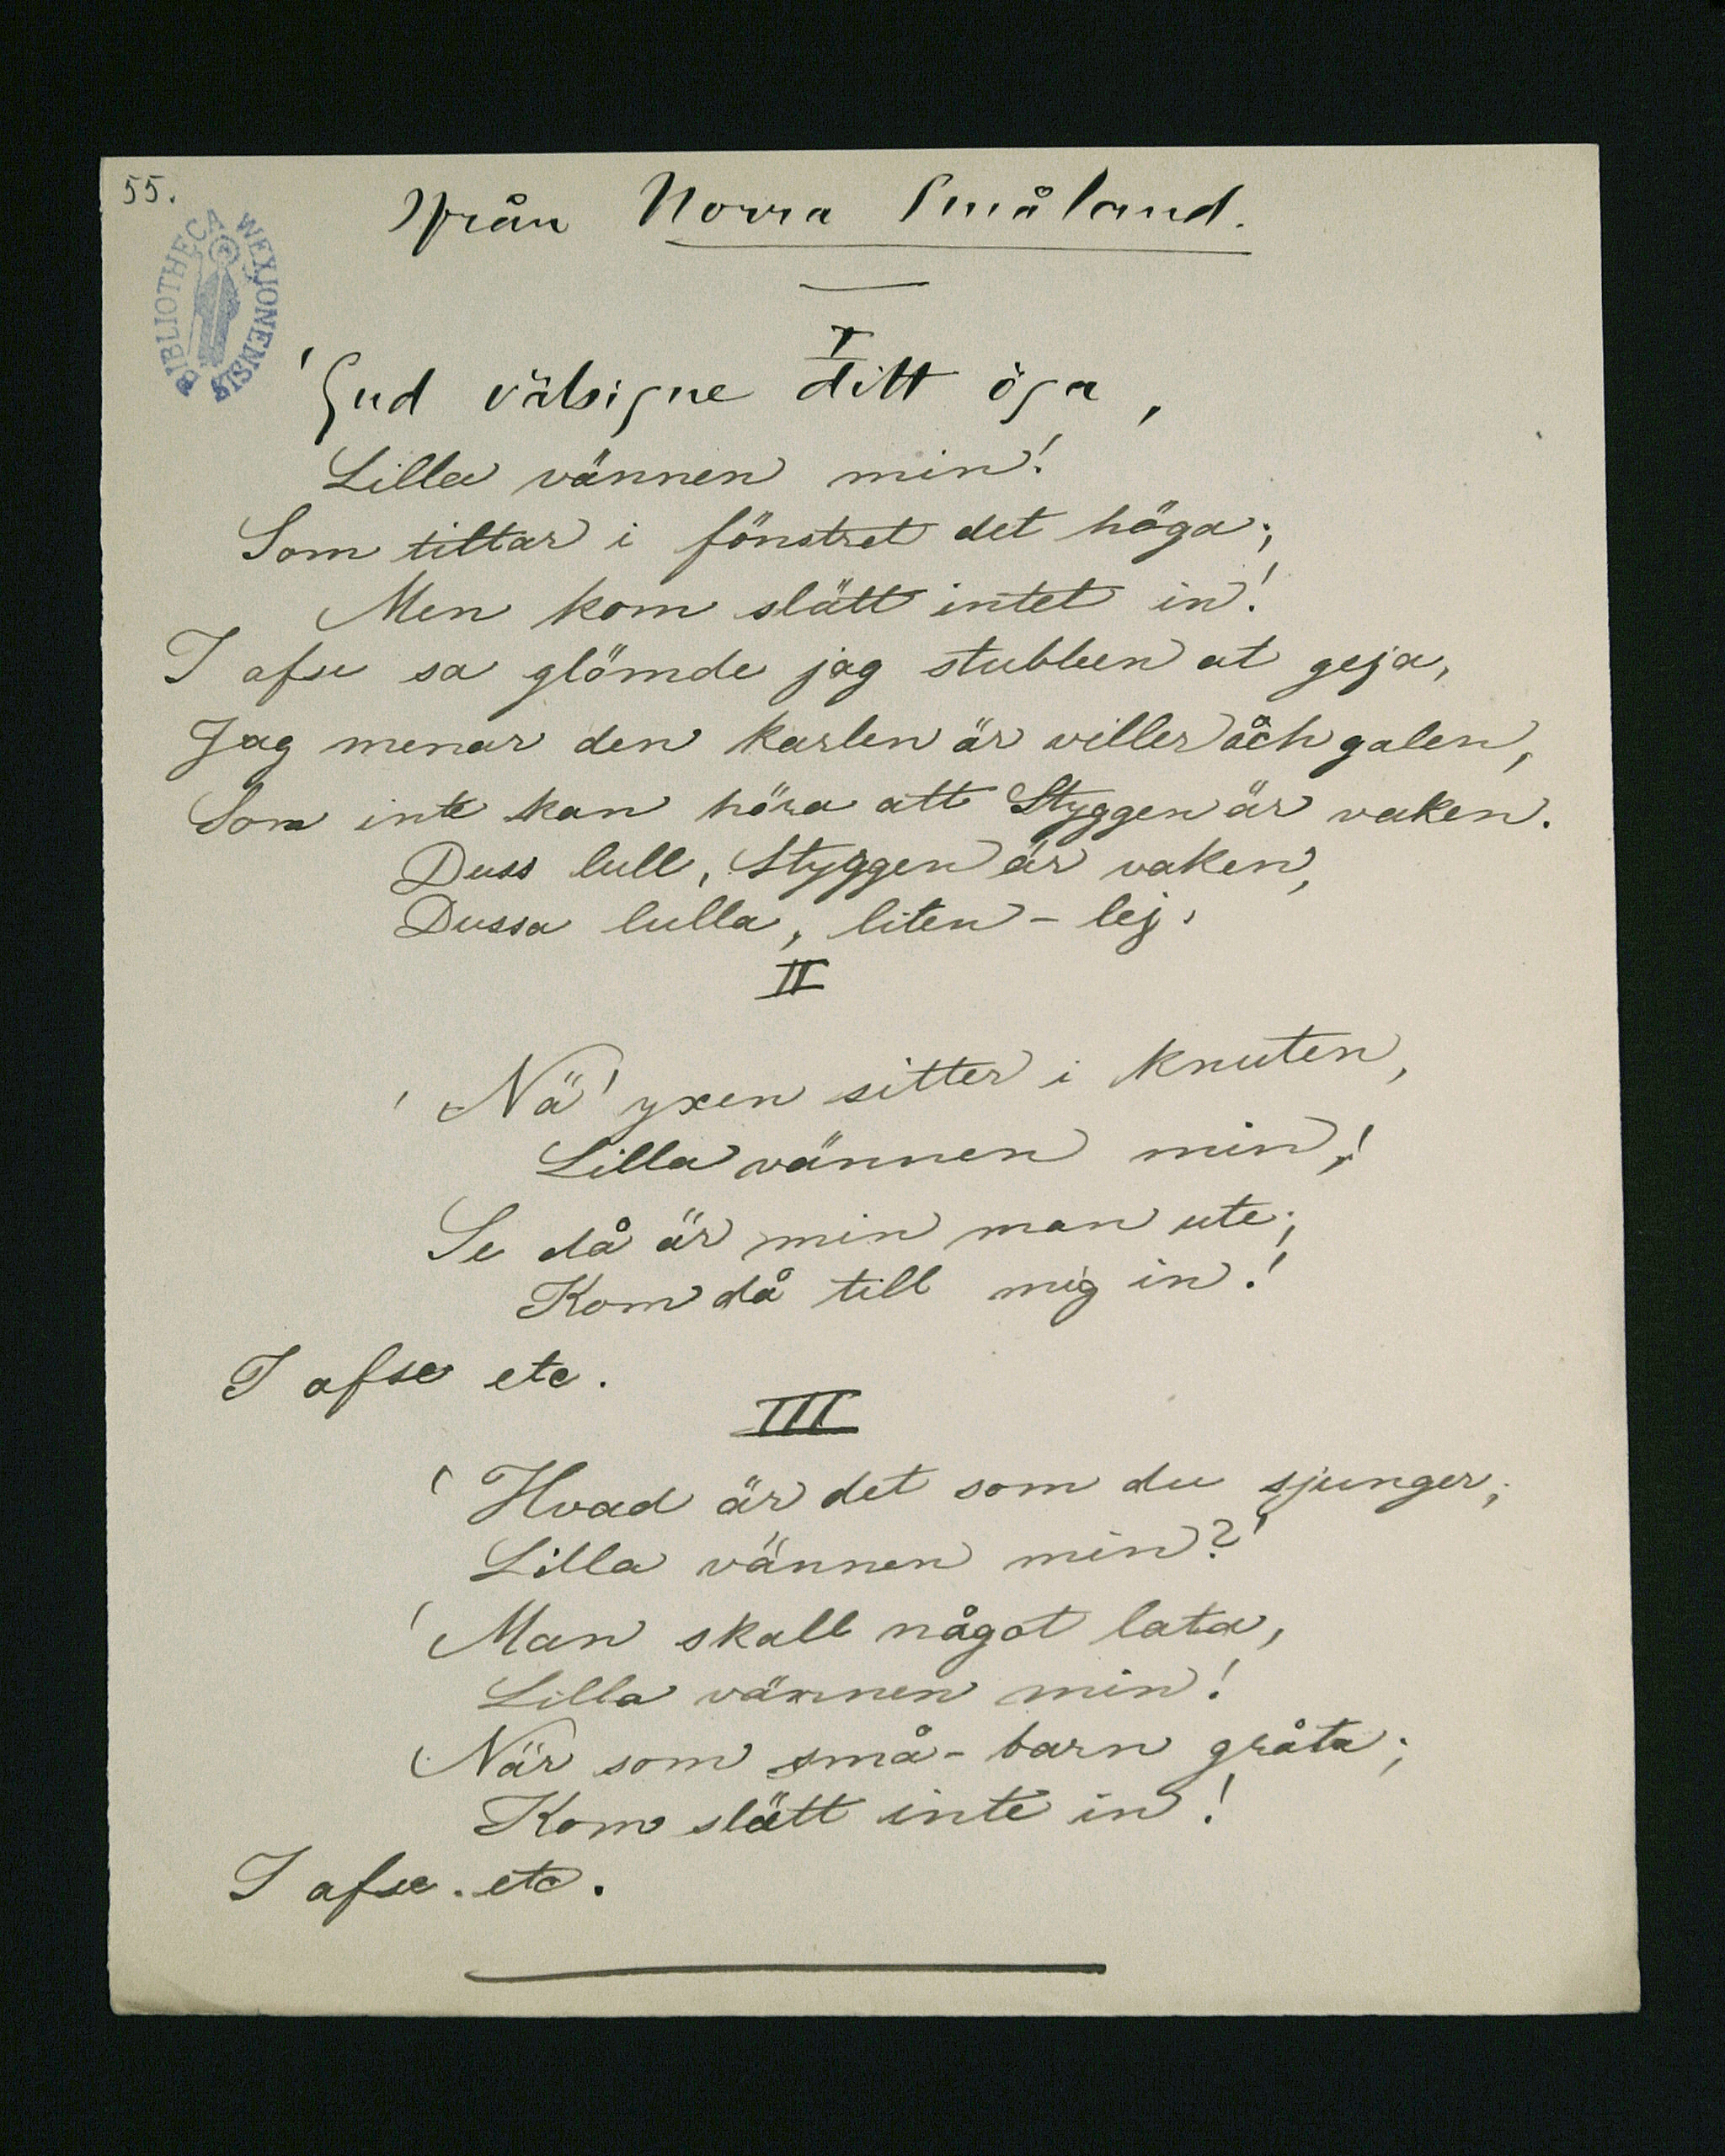 55.
Från Norra Småland.
BIBLIOTHECA WEXJONENSIS
I
'Gud välsigne ditt öga,
Lilla vännen min!
Som tittar i fönstret det höga;
Men kom slätt intet in!
I afse sa glömde jag stubben at geja,
Jag menar den karlen är willer åch galen,
Som inte kan höra att Styggen är vaken.
Duss lull, Styggen är vaken,
Dussa lulla, liten-lej.
II
'Nä' yxen sitter i knuten,
Lilla vännen min,!
Se då är min man ute;
Kom då till mig in!
I afse etc.
III
'Hvad är det som du sjunger,
Lilla vännen min?'
'Man skall något lata,
Lilla vännen min!
När som små-barn gråta;
Kom slätt inte in!
I afse. etc.